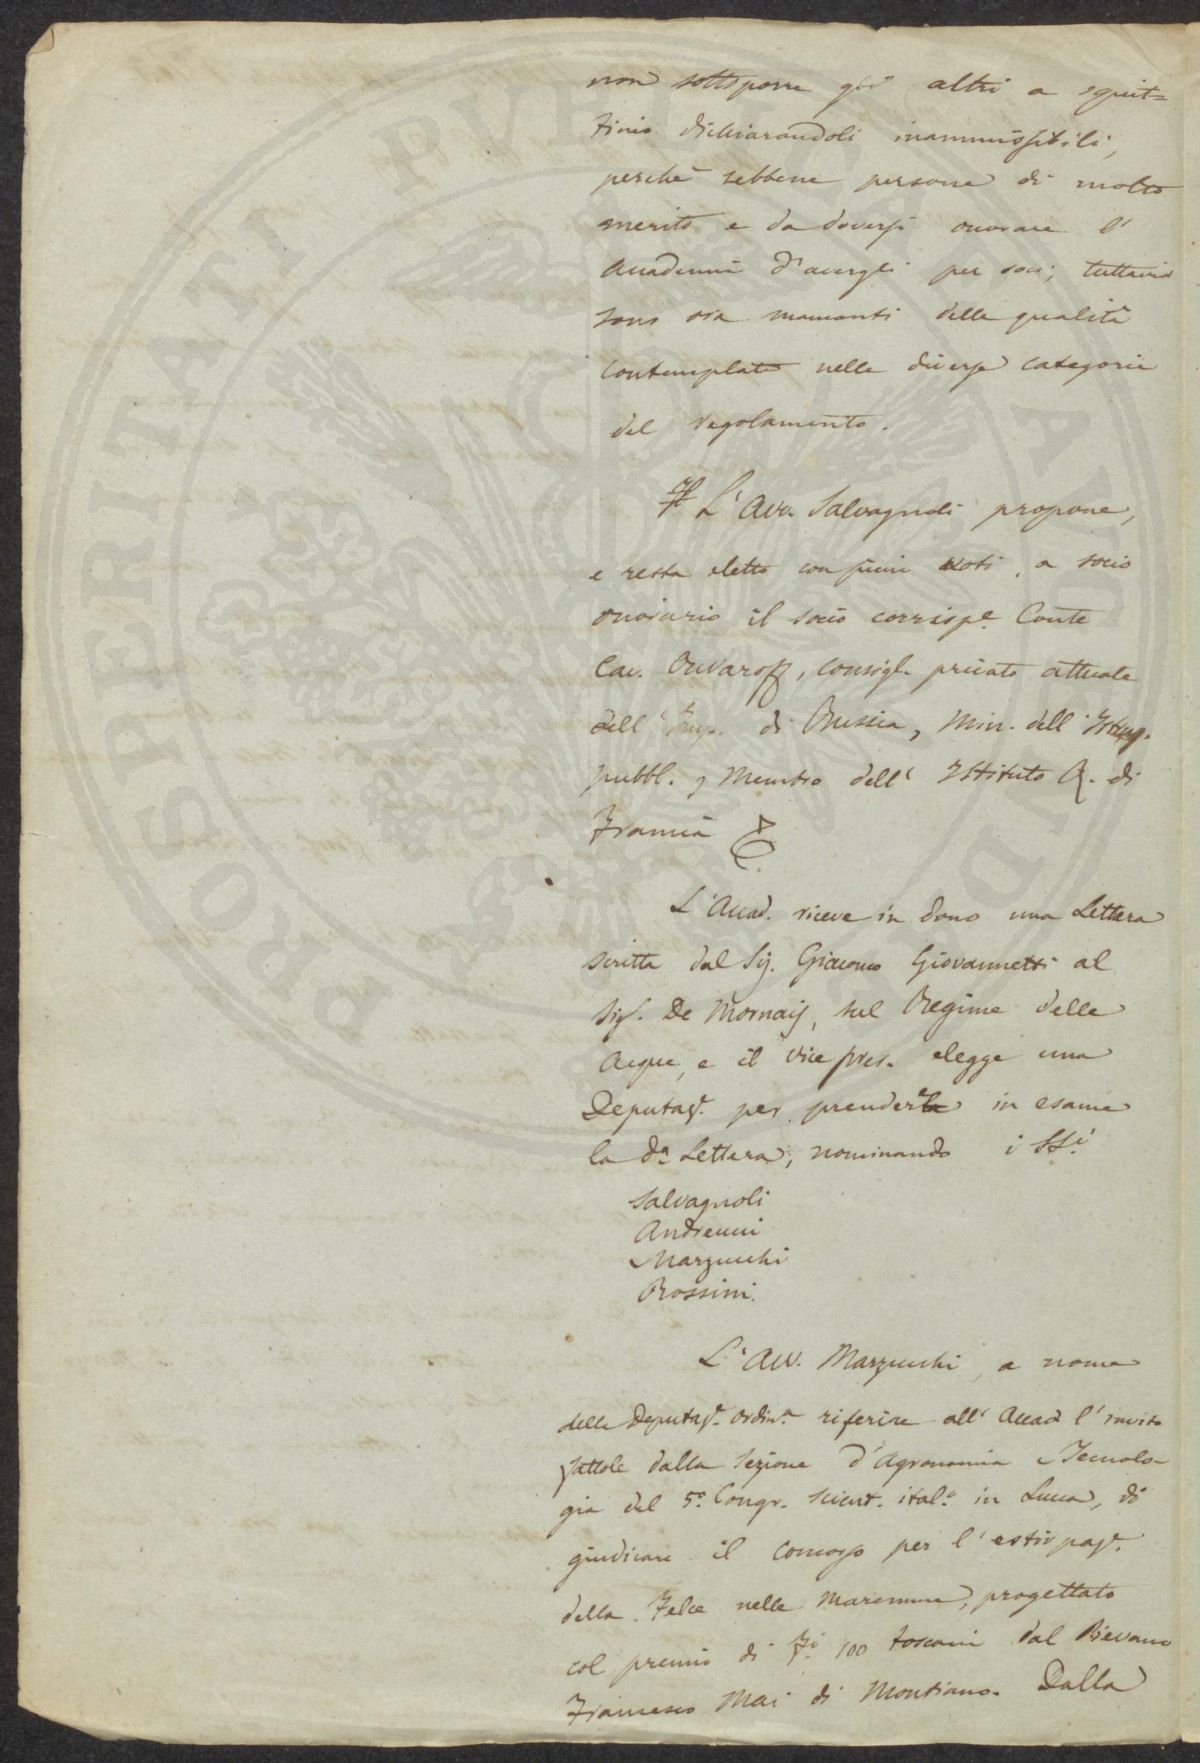 non sottoporre gli altri a squit=
tinio dichiarandoli inammissibili,
perchè sebbene persone di molto
merito e da doversi onorare l'
Accademia d'avergli per soci, tuttavia
sono ora mancanti delle qualità
contemplate nelle diverse categorie
del regolamento.
L'Avv. Salvagnoli propone,
e resta eletto con pieni voti, a socio
onorario il socio corrispe. Conte
Cav. Ouvaroff, consigl. privato attuale
dell'Imp. di Russia, Min. dell'Istruz.
pubbl., Membro dell'Istituto R. di
Francia
L'Accad. riceve in dono una Lettera
scritta dal Sig. Giacomo Giovannetti al
Sig. De Mornay, sul Regime delle
Acque, e il Vice pres. elegge una
Deputaz. per prendere in esame
la da. Lettera, nominando i SSi.
Salvagnoli
Andreucci
Marzucchi
Rossini.
L'Avv. Marzucchi, a nome
della Deputaze. ordina. riferire all'Accad. l'invito
fattole dalla Sezione d'Agronomia e Tecnolo-
gia del 5o. Congr. scient. italo. in Lucca, di
giudicare il Concorso per l'estirpaze.
della Felce nelle Maremme, progettato
col premio di Fi. 100 toscani dal Pievano
Francesco Mai di Montiano. Dalla
SOSPERITATI PVBLICAE AVGENDAE